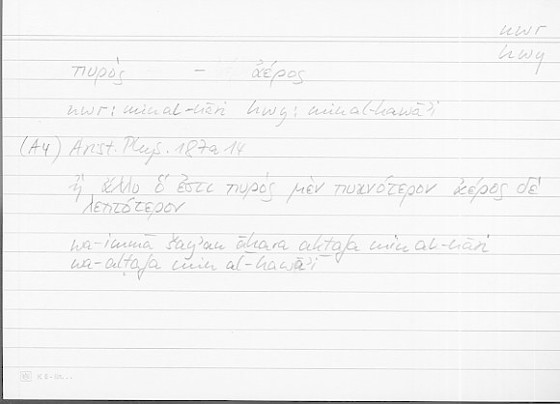 nwr
hwy
πυρός – ἀέρος
nwr: min al-nāri hwy: min al-hawāʾi
(A4) Arist. Phys. 187a14
ἢ ἄλλο ὅ ἐστι πυρὸς μὲν πυκνότερον ἀέρος δὲ
λεπτότερον
wa-immā šayʾan āḫara akṯafa min an-nāri
wa-alṭafa min al-hawāʾi